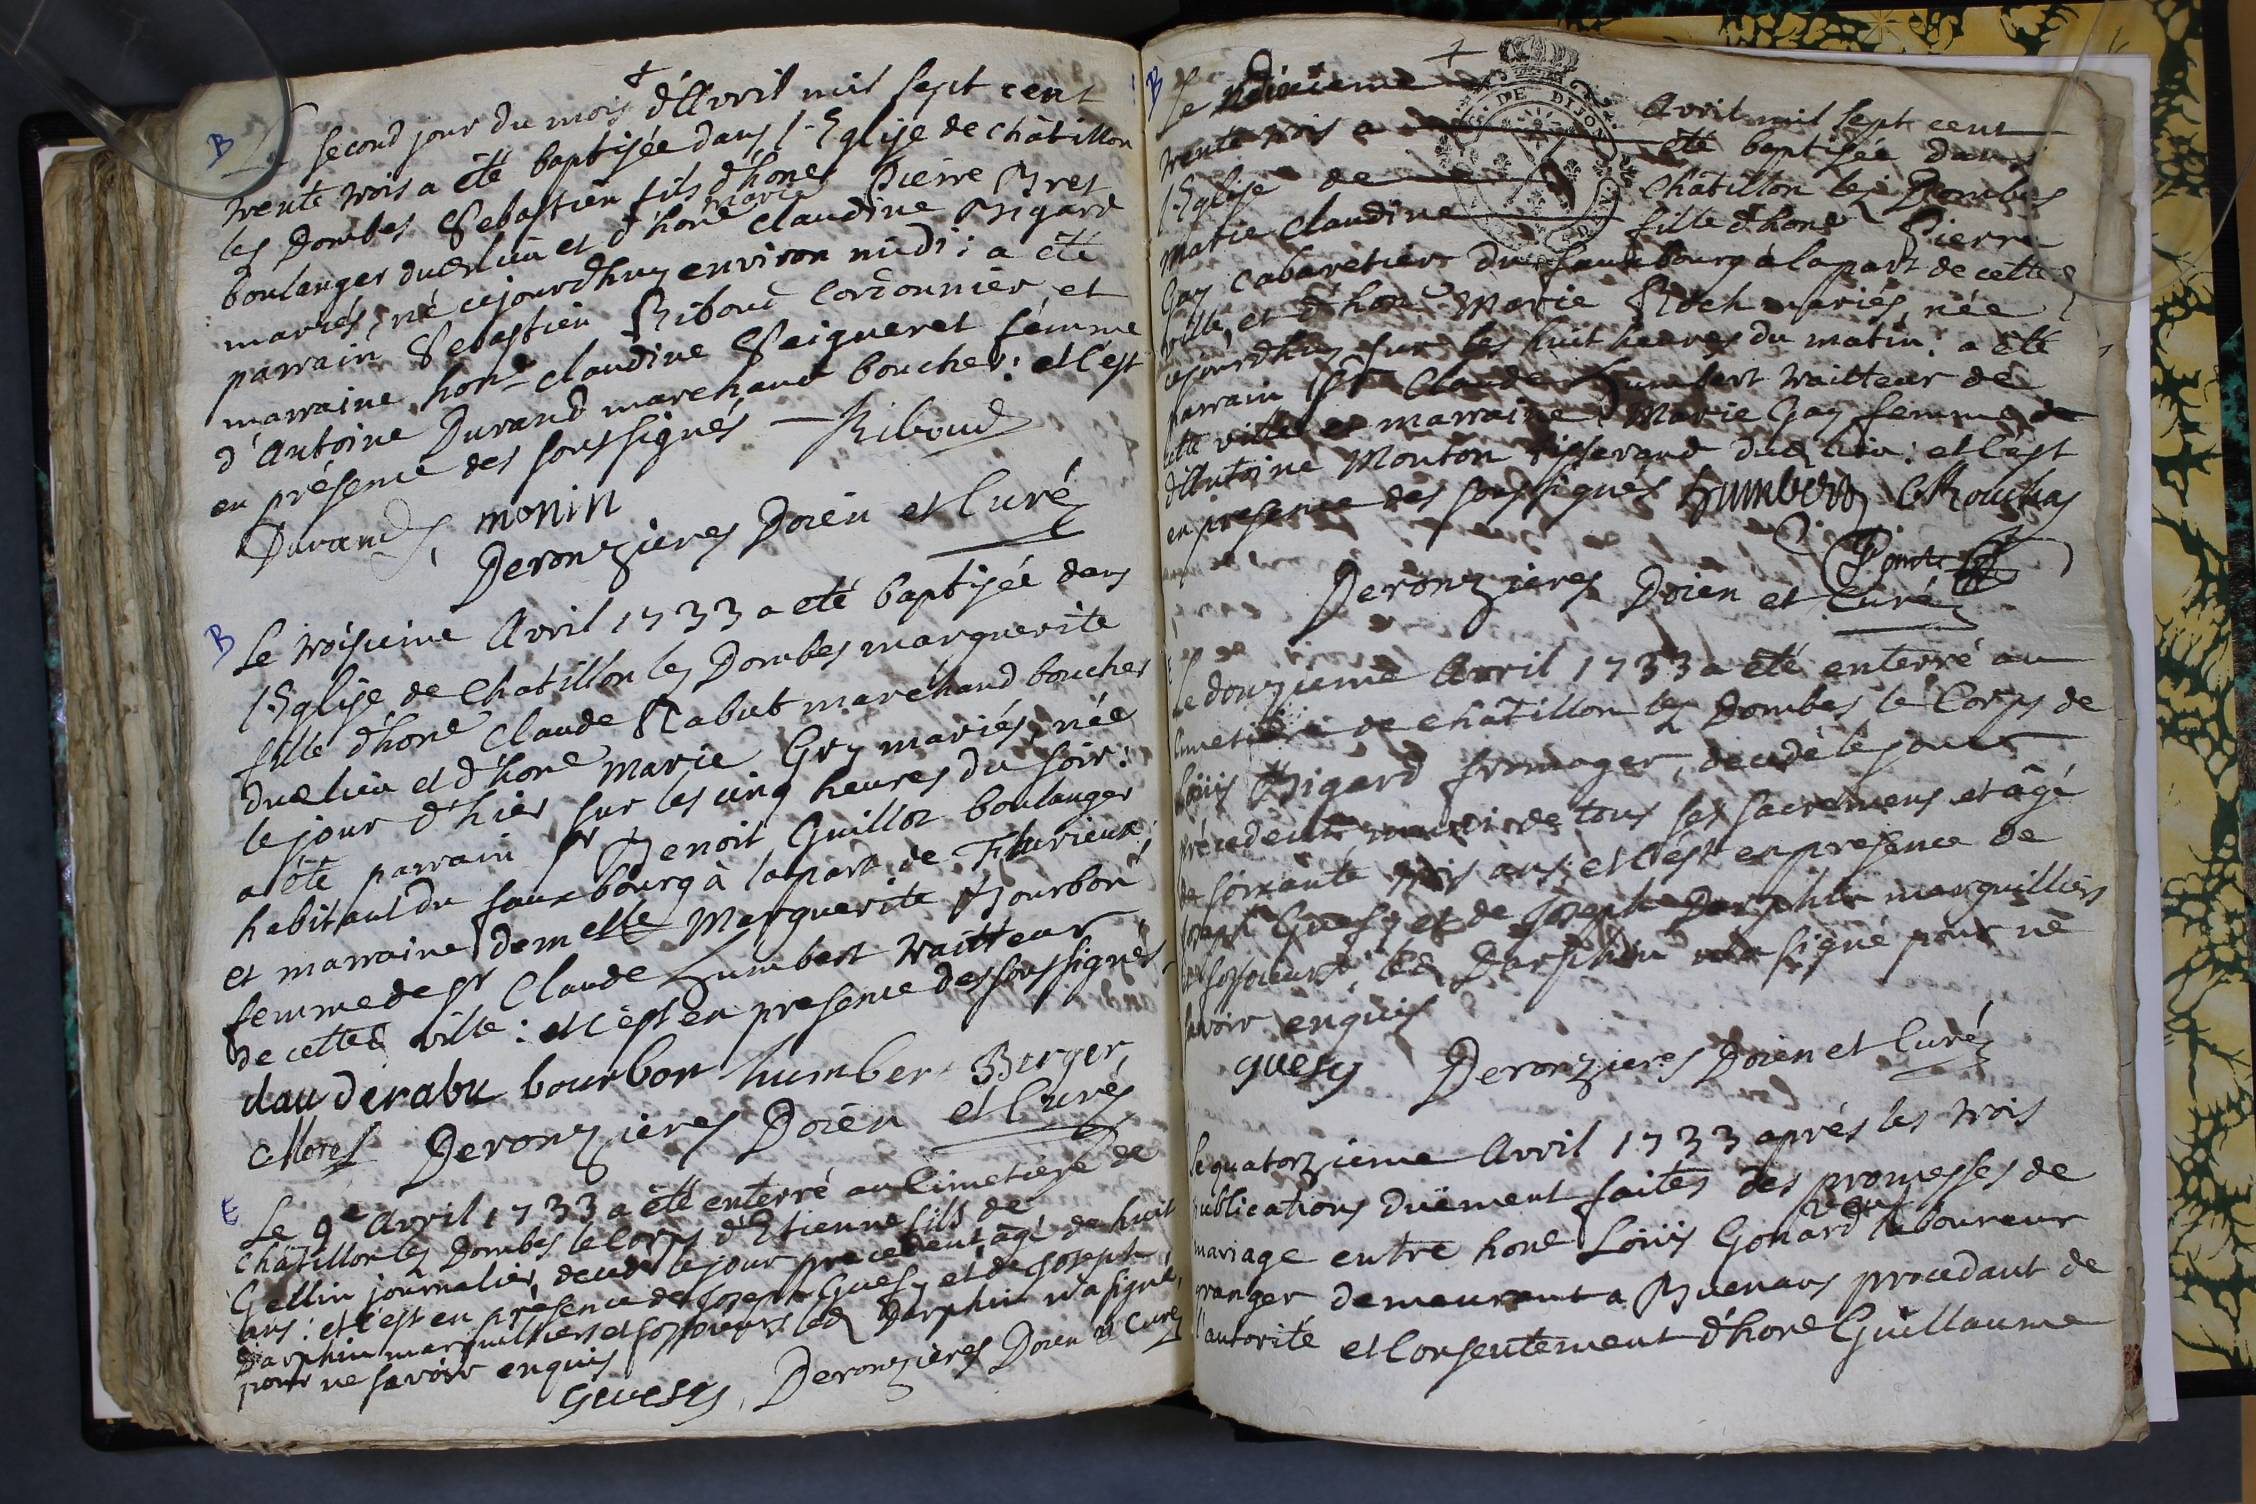 B Le second jour du mois d'Avril mil sept cent
trente trois a été baptisée dans l'Eglise de châtillon
les Dombes Sebastien fils d'hone Pierre Bret
boulanger dud lieu et d'hone marie claudine Bigard
mariés, né cejourdhuy environ midi: a été
parrain Sebastien Riboud Cordonnier, et
marraine hone claudine Seigneret femme
d'Antoine Durand marchand boucher: et c'est
en présence des soussignés Riboud
Durand, monin
Deronzieres Doien et Curé
B Le troisieme Avril 1733 a eté baptisée dans
l'Eglise de Chatillon les Dombes marguerite
fille d'hone Claude Rabut marchand boucher
dud lieu et d'hone Marie Gry mariés, née
le jour d'hier sur les cinq heures du soir:
a été parrain sr Benoit Guillot boulanger
habitant du fauxbourg à la part de Flurieux:
et marraine demelle Marguerite Bourbon
femme de sr Claude humbert traitteur
de cetted ville: et c'est en presence des soussignés
claude rabu bourbon humber Berger
Morel Deronzieres Doien et Curé
E Le 9e Avril 1733 a été enterré au Cimetiere de
châtillon les Dombes le Corps d'Etienne fils de
Gellin journalier, decedé le jour precedent âgé de huit
ans: et c'est en présence de Joseph Guesy et de Joseph
Darphin marguilliers et fossoieurs led Darphin n'a signé,
pour ne savoir enquis
Guesy, Deronzieres Doien et Curé
B Le dixieme Avril mil sept cent
trente trois a été baptisée dans
l'Eglise de Châtillon les Dombes
Marie Claudine fille d'hone Pierre
Gay Cabaretier du fauxbourg à la part de cetted
ville, et d'hone Marie Roch mariés, née
cejourdhuy sur les huit heures du matin: a été
parrain sr Claude humbert traitteur de
cette ville et marraine Marie Gay femme
d'Antoine Mouton tisserand dud lieu: et c'est
en presence des soussignés humbert CRouchas
DE DIJON
Deronzieres Doien et Curé
Le douzieme Avril 1733 a été enterré au
cimetiere de châtillon les Dombes le Corps de
Loüis Bigard fromager, decedé le jour
précedent muni de tous ses sacremens et âgé
de soixante trois ans: et c'est en presence de
Joseph Guesy et de Joseph Darphin marguilliers
et fossoieurs, led Darphin n'a signé pour ne
savoir enquis
guesy Deronzieres Doien et Curé
Le quatorzieme Avril 1733 aprés les trois
publications düement faites des promesses de
mariage entre hone Loüis Gonard veuf laboureur
granger demeurant a Buenans procedant de
l'autorité et Consentement d'hone Guillaume